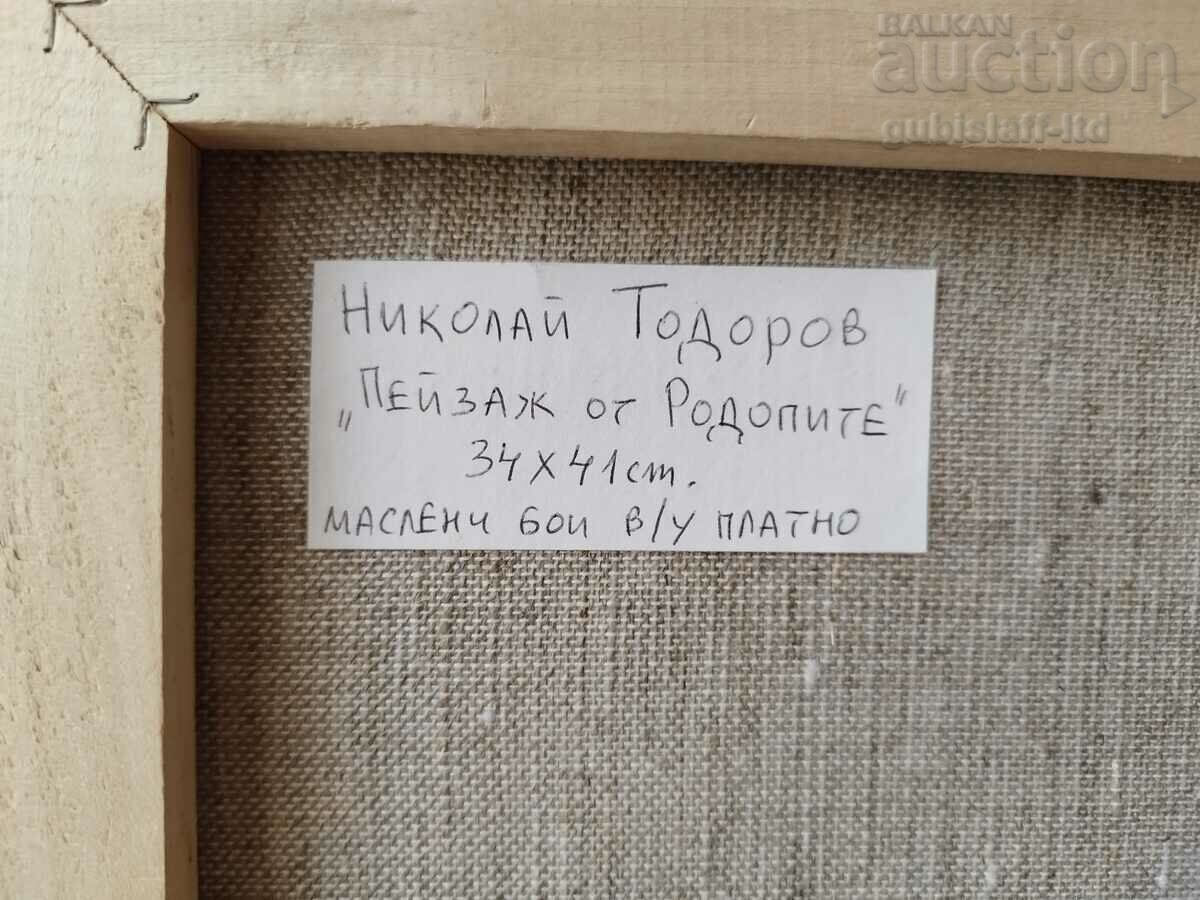 BALKAN
auction
gubislaff-ltd
Николай Тодоров
„Пейзаж от Родопите"
34х41cm.
маслени бои в/у платно